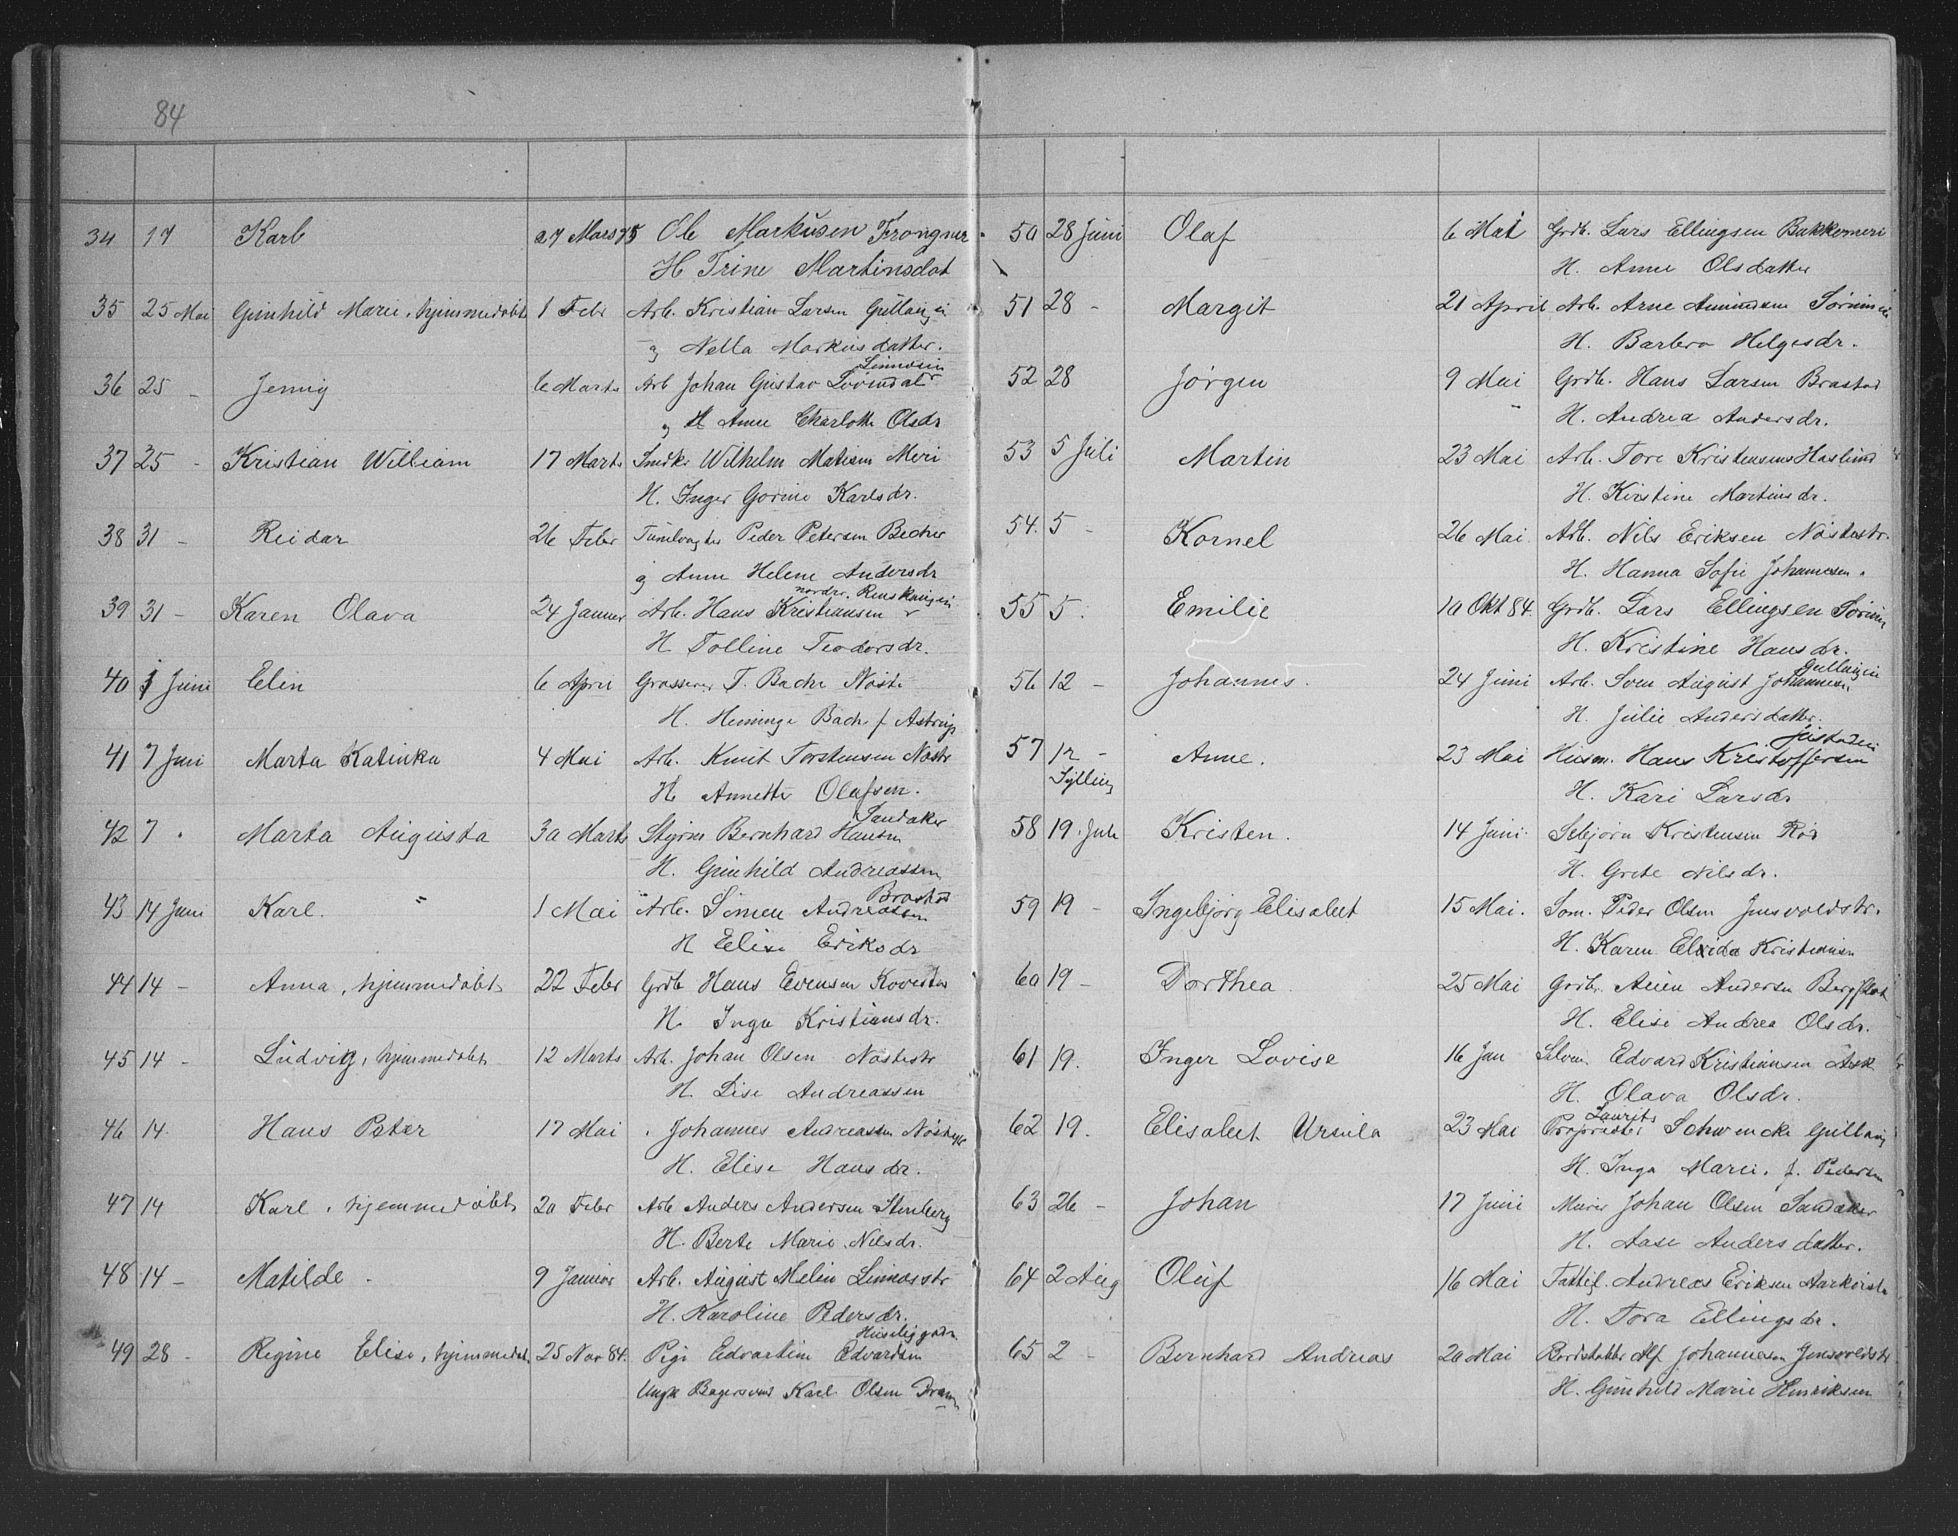 84
34 17 Karl 27 Mars 75 Ole Markusen Frogner
H Trine Martinsdat
35 25 Mai Gunhild Marie, hjemmedøbt 1 Febr Arb. Kristian Larsen Gullaugei
og Nella Markusdatter.
Linnesiei
36 25 - Jenny 6 Marts Arb Johan Gustav
og H Anne Charlotte Olsdr
37 25 - Kristian William 17 Marts Snedkr Wilhelm Matisen Meri
H. Inger Gorine Karlsdr.
38 31 - Reidar 26 Febr Peder Petersen Becher
og Anne Helene Andersdr
nordr.
39 31 - Karen Olava 24 Januar Arb. Hans Kristiansen
H. Tolline Teodorsdr.
40 1 Juni Elin 6 April Grosserer T. Bache Nøste
H. Henninge Bach f. Astrup
41 7 Juni Marta Katinka 4 Mai Arb. Knut Torstensen Nøste
H. Annette Olafsen.
Sandaker
42 7 - Marta Augusta 30 Marts Styrm Bernhard Hansen
H. Gunhild Andreassen
Brastad
43 14 Juni Karl. 1 Mai Arb. Simen Andreassen
H Elise Eriksdr
44 14 - Anna, hjemmedøbt 22 Febr Grdb Hans Evensen
H. Inga Kristiansdr.
45 14 - Ludvig, hjemmedøbt 12 Marts Arb. Johan Olsen Nøstestr
H. Lise Andreassen
46 14. Hans Peter 17 Mai Johannes Andreassen
H. Elise Hansdr.
47 14 Karl, hjemmedøbt 20 Febr Arb Anders Andersen Stenberg
H. Berte Marie Nilsdr.
48 14 - Matilde. 9 Januar Arb. August Melin Linnesstr
H. Karoline Pedersdr.
49 28 - Regine Elise, hjemmedøbt 25 Nov 84. Pige Edvartine Edvardsen
Ungk Bagersvend Karl Olsen Dramn
50 28 Juni Olaf 6 Mai Grdb. Lars Ellingsen
H. Anne Olsdatter
51 28 - Margit 21 April Arb. Arne Amundsen
H. Barbro Helgesdr.
52 28 Jørgen 9 Mai Grdb. Hans Larsen Brastad
H. Andrea Andersdr.
53 5 Juli Martin 23 Mai Arb. Tore Kristensens Haslund
H. Kirstine Martinsdr.
54. 5 - Kornel 26 Mai Arb. Nils Eriksen Nøstestr.
H. Hanna Sofie Johannesen.
55 5. Emilie 10 Okt 84. Grdb. Lars Ellingsen
H. Kristine Hansdr.
Gullaugei
56 12 - Johannes. 24 Juni Arb. Sven August Johannesen
H. Julie Andersdatter.
57 12 - Anne. 23 Mai Husm. Hans Kristoffersen
Sylling H. Kari Larsdr
58 19. Juli Kristen. 14 Juni. Sebjørn Kristensen Rød
H. Grete Nilsdr.
59 19 - Ingebjørg Elisabet 15 Mai. Søm. Peder Olsen Jensvoldstr.
H. Karen Elvida Kristiansen
60 19 - Dorthea 25 Mai Grdbr. Andersen Bergflot
H. Elise Andrea Olsdr.
61 19. Inger Lovise 16 Jan Selvei Edvard Kristiansen Ask
H. Olava Olsdr.
Laurits
62 19. Elisabet Ursula 23 Mai Proprietær Schwencke Gullaug
H. Inga Marie, f. Pedersen
63 26 - Johan 17 Juni Murer Johan Olsen Sandaker
H. Aase Andersdatter.
64 2 Aug Oluf 16 Mai Fattigl. Andreas Eriksen
H. Tora Ellingsdr.
65 2 - Bernhard Andreas 20 Mai Alf Johannesen Jensvoldstr
H. Gunhild Marie Henriksen